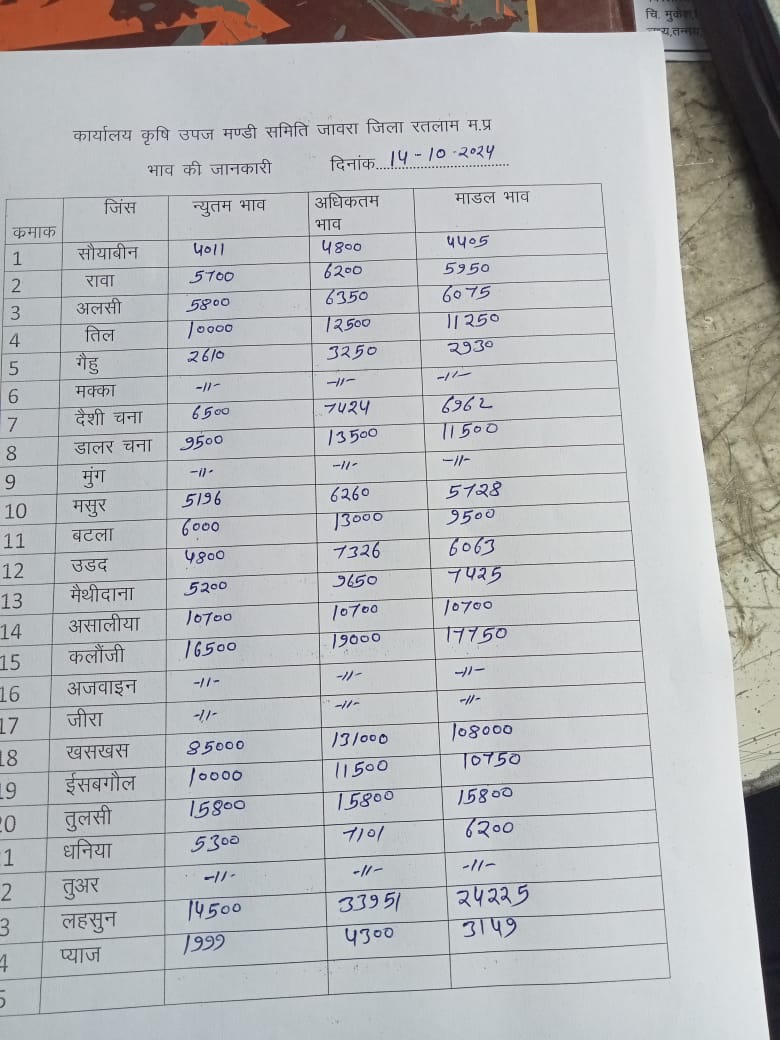 चि. मुकेश
कार्यालय कृषि उपज मण्डी समिति जावरा जिला रतलाम म.प्र
भाव की जानकारी दिनांक 14-10-2024
कमाक जिंस न्युतम भाव अधिकतम भाव माडल भाव
1 सौयाबीन 4011 4800 4405
2 रावा 5700 6200 5950
3 अलसी 5800 6350 6075
4 तिल 10000 12500 11250
5 गैहु 2610 3250 2930
6 मक्का -11- -11- -11-
7 दैशी चना 6500 7424 6962
8 डालर चना 9500 13500 11500
9 मुंग -11- -11- -11-
10 मसुर 5196 6260 5728
11 बटला 6000 13000 9500
12 उडद 4800 7326 6063
13 मैथीदाना 5200 9650 7425
14 असालीया 10700 10700 10700
15 कलौंजी 16500 19000 17750
16 अजवाइन -11- -11- -11-
17 जीरा -11- -11- -11-
18 खसखस 85000 131000 108000
19 ईसबगौल 10000 11500 10750
20 तुलसी 15800 15800 15800
1 धनिया 5300 7101 6200
2 तुअर -11- -11- -11-
3 लहसुन 14500 33951 24225
4 प्याज 1999 4300 3149
5